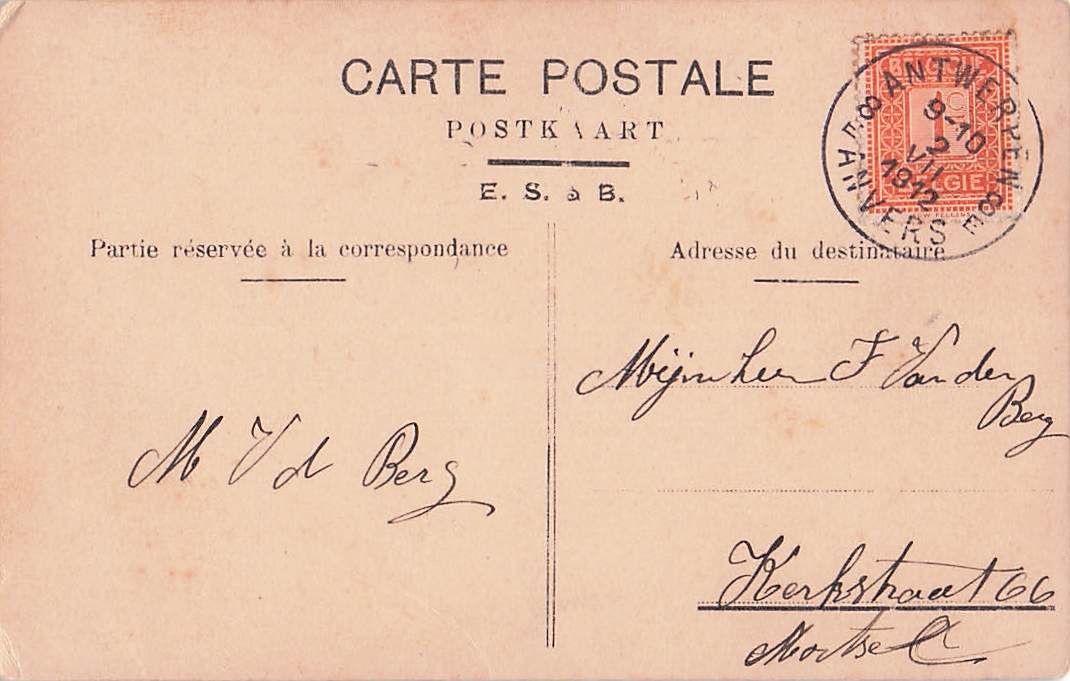 CARTE POSTALE
POSTKAART
E. S. & B.
BELGIQUE
1 C
BELGIE
ANTWERPEN 8 E
9-10
2
VII
1912
ANVERS
Partie réservée à la correspondance
Adresse du destinataire
M V d Berg
Mijnheer F Van den
Berg
Kerkstraat 66
Mortsel